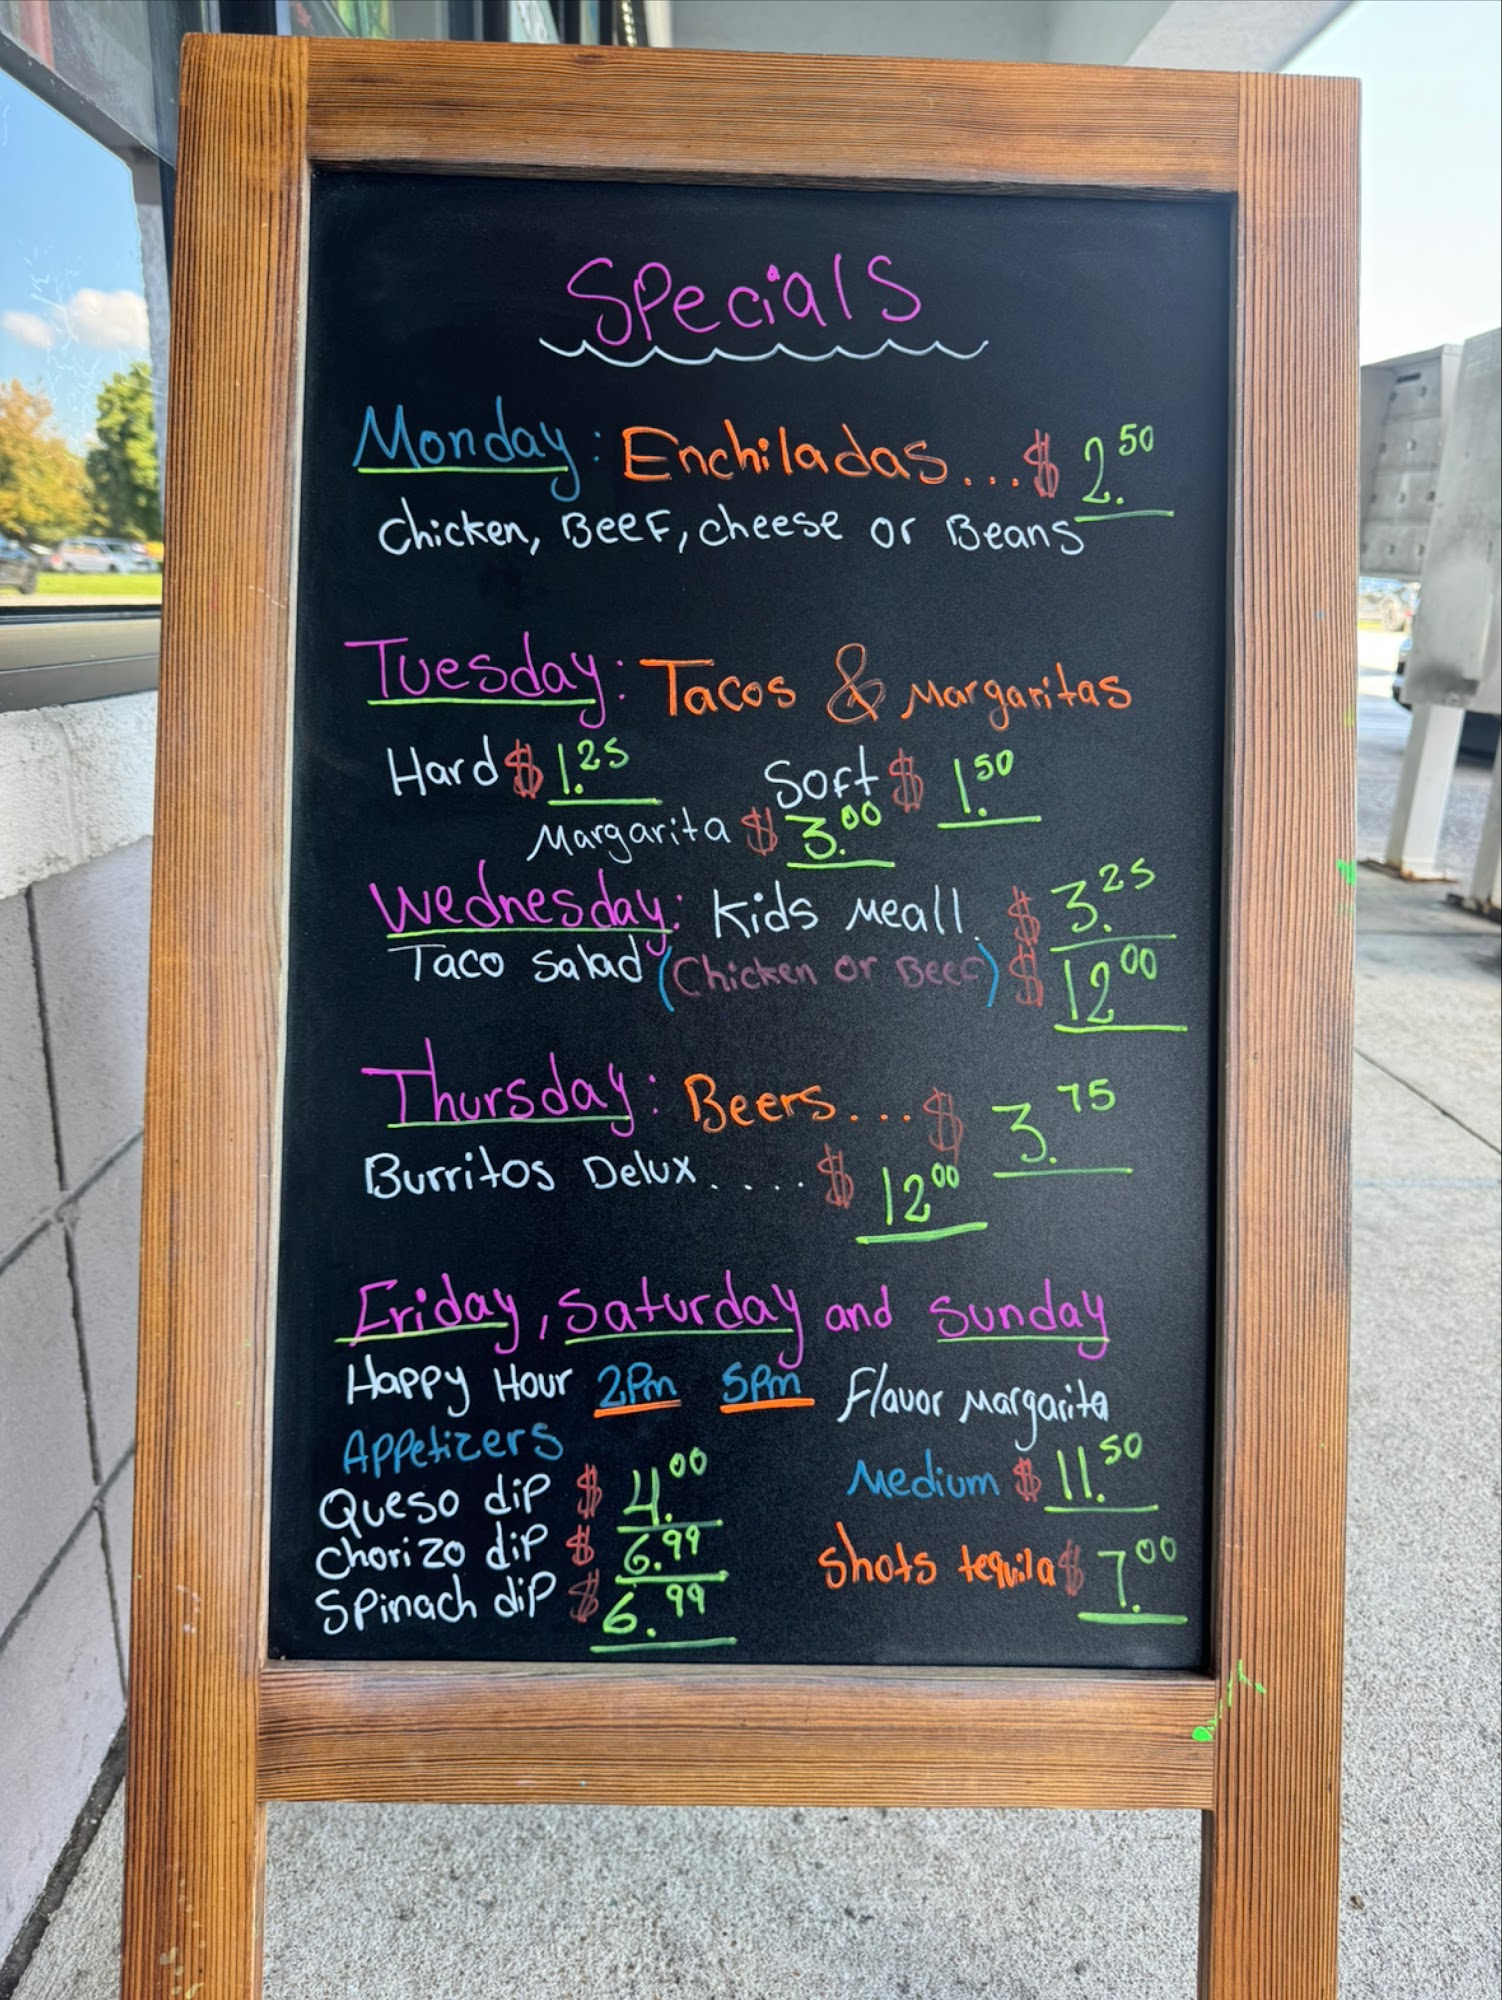 Specials
Monday: Enchiladas...$ 2.50
Chicken, Beef, cheese or Beans
Tuesday: Tacos & Margaritas
Hard $ 1.25 Soft $ 1.50
Margarita $ 3.00
Wednesday: Kids Meall. $ 3.25
Taco Salad (Chicken or Beef) $ 12.00
Thursday: Beers...$ 3.75
Burritos Delux.....$ 12.00
Friday, Saturday and Sunday
Happy Hour 2Pm 5Pm Flavor Margarita
Appetizers
Medium $ 11.50
Queso dip $ 4.00
Chorizo dip $ 6.99
Shots tequila $ 7.00
Spinach dip $ 6.99